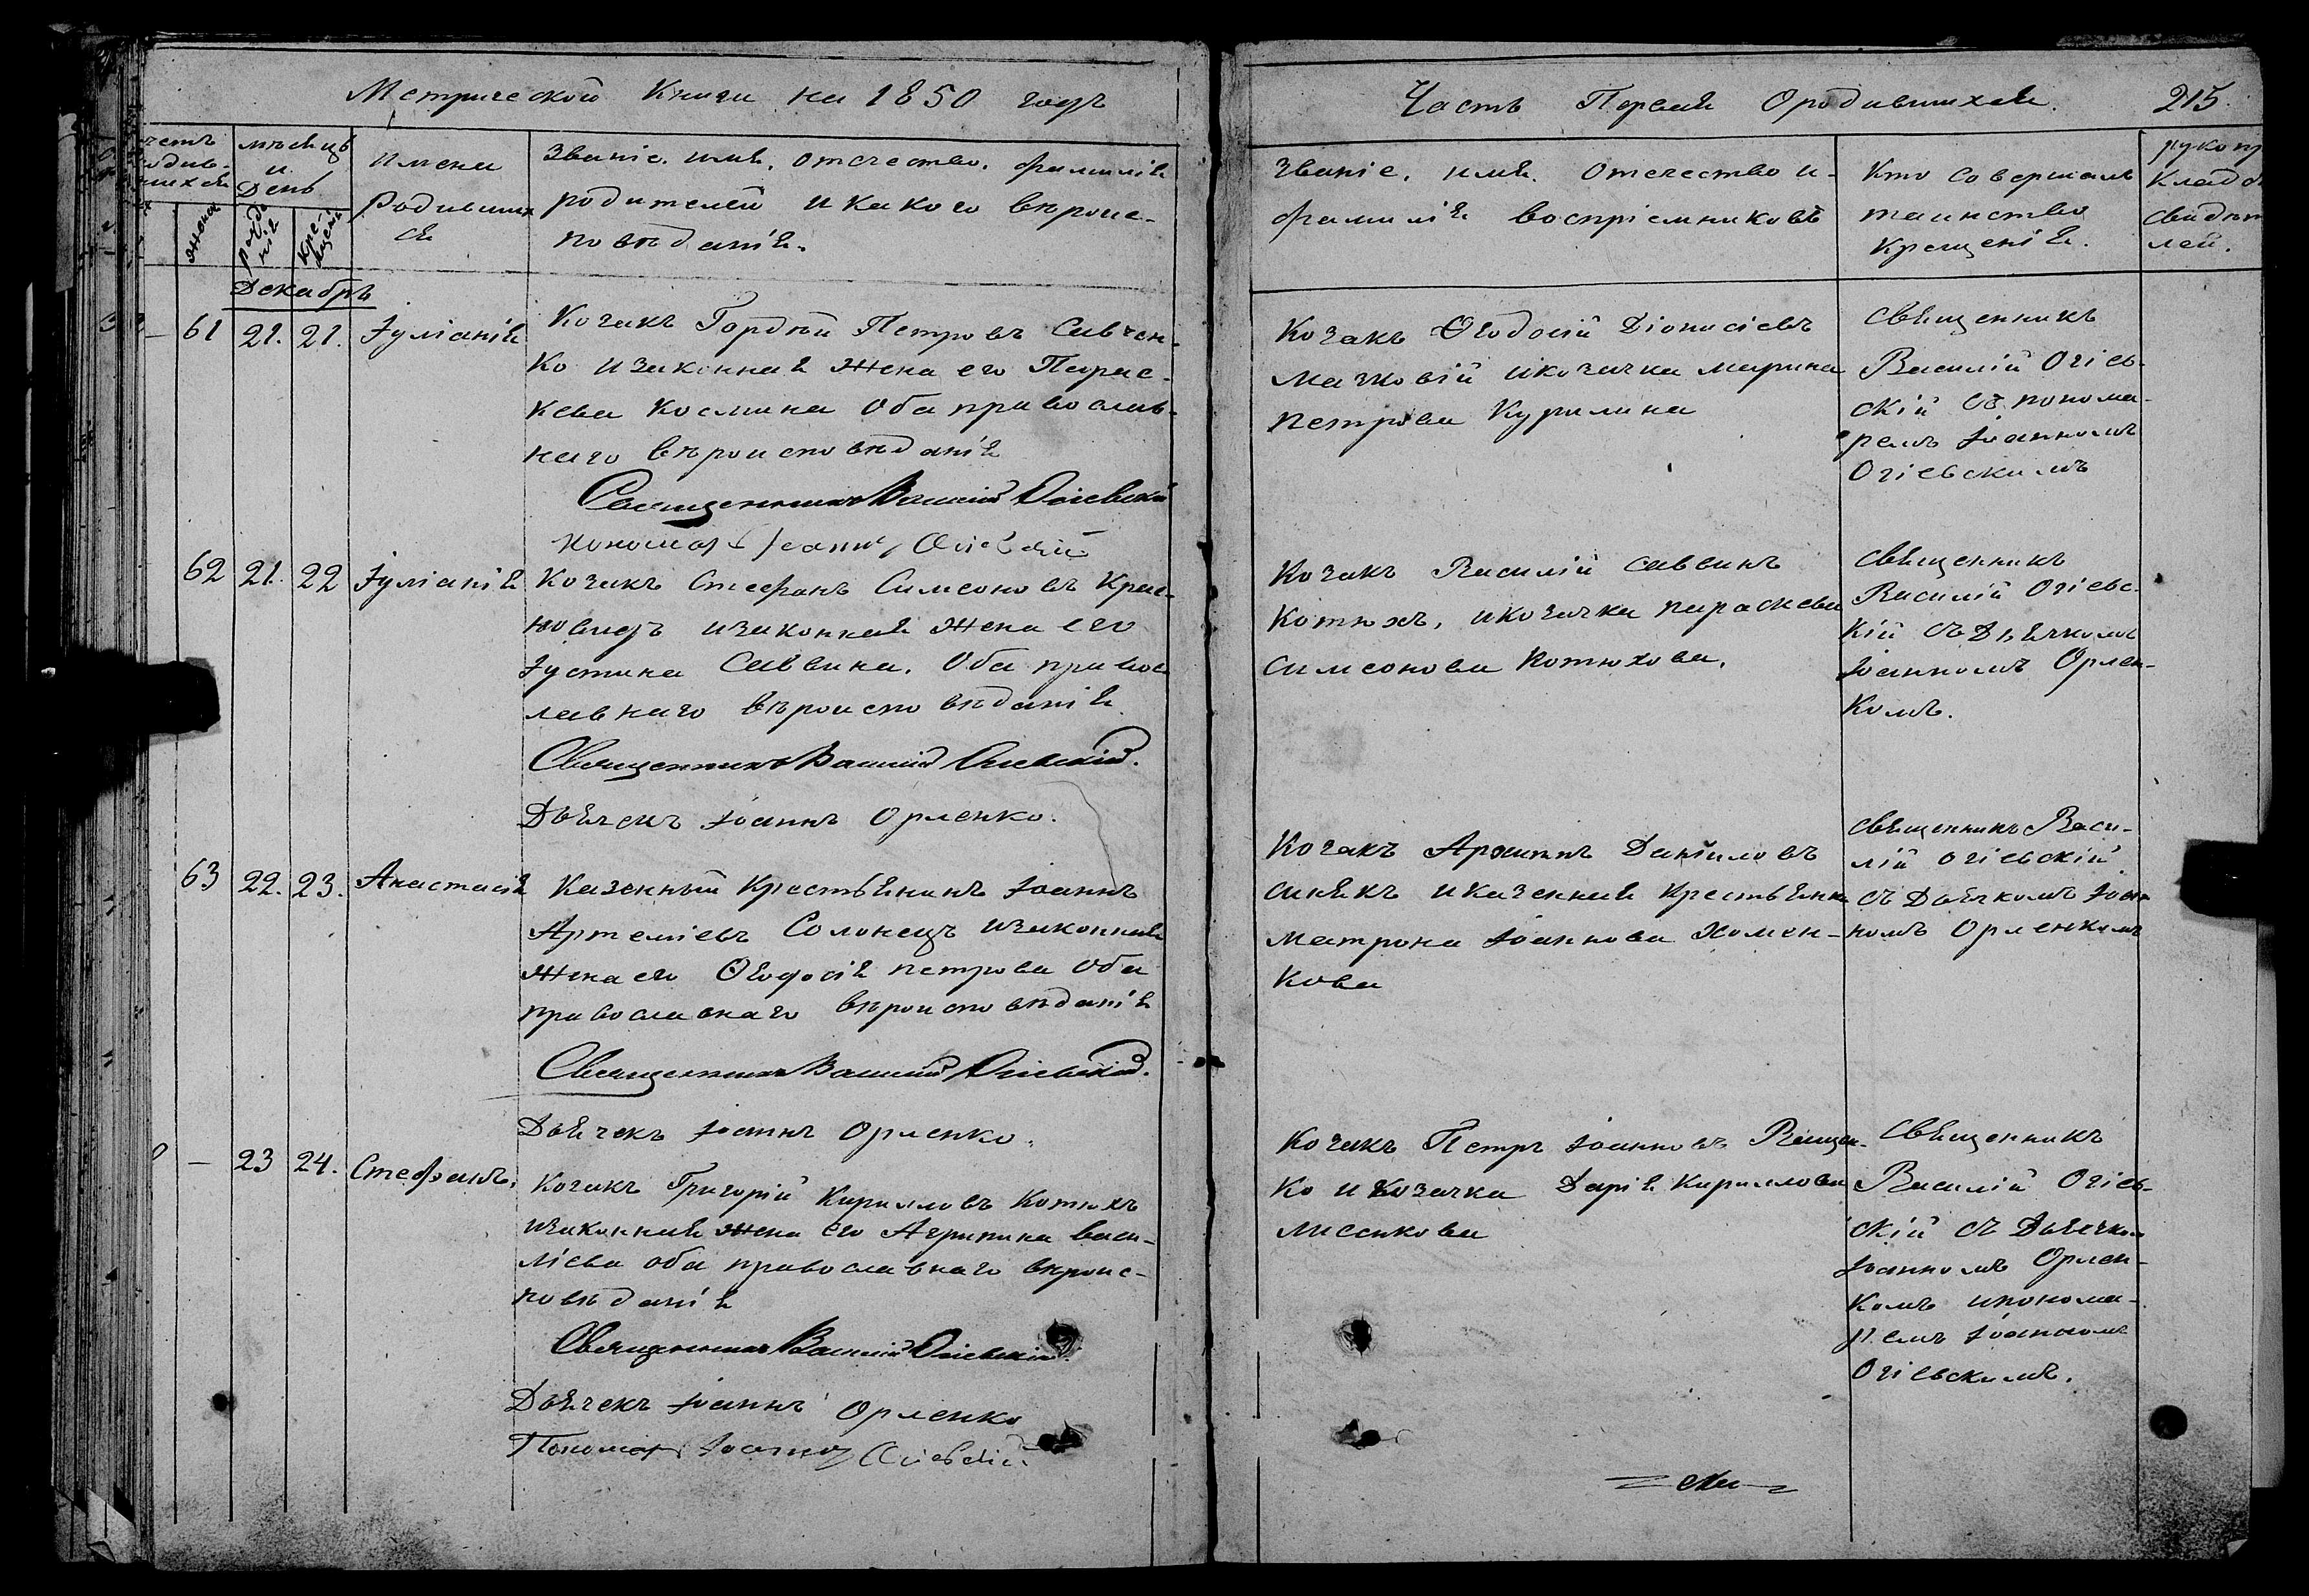 Метрической Книги на 1850 годъ
Часть Первая Ородившихся. 215.
счетъ родив-шихся
мѣсяцъ и День
жена
рождения
крещения
Имена Родившихся
Званіе. имя, отчество, фамилія
родителей и какого вѣроис-
повѣданія.
Званіе, имя. Отечество и
фамилія воспріемниковъ
Кто Совершалъ
таинство
Крещенія.
рукопр
Клад
Свидѣт
лей.
Декабрь
— 61 21. 21. Іуліанія
Козакъ Гордѣй Петровъ Савчен-
ко и законная Жена его Парас-
кева Космина Оба православ-
наго вѣроисповѣданія
Священникъ Василій Огіевскій
Пономарь Іоаннъ Огіевскій
Козакъ Ѳеодосій Діонисіевъ
Мачковій и козачка Марина
Петрова Курилина
Священникъ
Василій Огіев-
скій съ понома-
ремъ Іоанномъ
Огіевскимъ
62 21. 22 Іуліанія
Козакъ Стефанъ Симеоновъ Крас-
новидъ и законная Жена его
Іустина Саввина. Оба правос-
лавнаго вѣроисповѣданія
Священникъ Василій Огіевскій.
Дьячекъ Іоаннъ Орленко.
Козакъ Василій Саввинъ
Котюхъ, и козачка Параскева
Симеонова Котюхова.
Священникъ
Василій Огіевс-
кій съ Дьячкомъ
Іоанномъ Орлен-
комъ.
63 22. 23. Анастасія
Казенный Крестьянинъ Іоаннъ
Артеміевъ Солонецъ и законная
Жена его Ѳеодосія Петрова Оба
православнаго вѣроисповѣданія
Священникъ Василій Огіевскій.
Дьячекъ Іоаннъ Орленко.
Козакъ Архиппъ Даніиловъ
Синякъ и казенная Крестьянка
Матрона Іоаннова Хомен-
кова
Священникъ Васи-
лій Огіевскій
съ Дьячкомъ Іоан-
номъ Орленкомъ
— 23 24. Стефанъ.
Козакъ Григорій Кирилловъ Котюхъ
и законная Жена его Агрипина Васи-
ліева оба православнаго вѣроис-
повѣданія
Священникъ Василій Огіевскій.
Дьячекъ Іоаннъ Орленко
Пономарь Іоаннъ Огіевскій.
Козакъ Петръ Іоанновъ Ващен-
ко и Козачка Дарія Кириллова
Лисенкова
Священникъ
Василій Огіев-
скій съ Дьячкомъ
Іоанномъ Орлен-
комъ и понома-
ремъ Іоанномъ
Огіевскимъ.